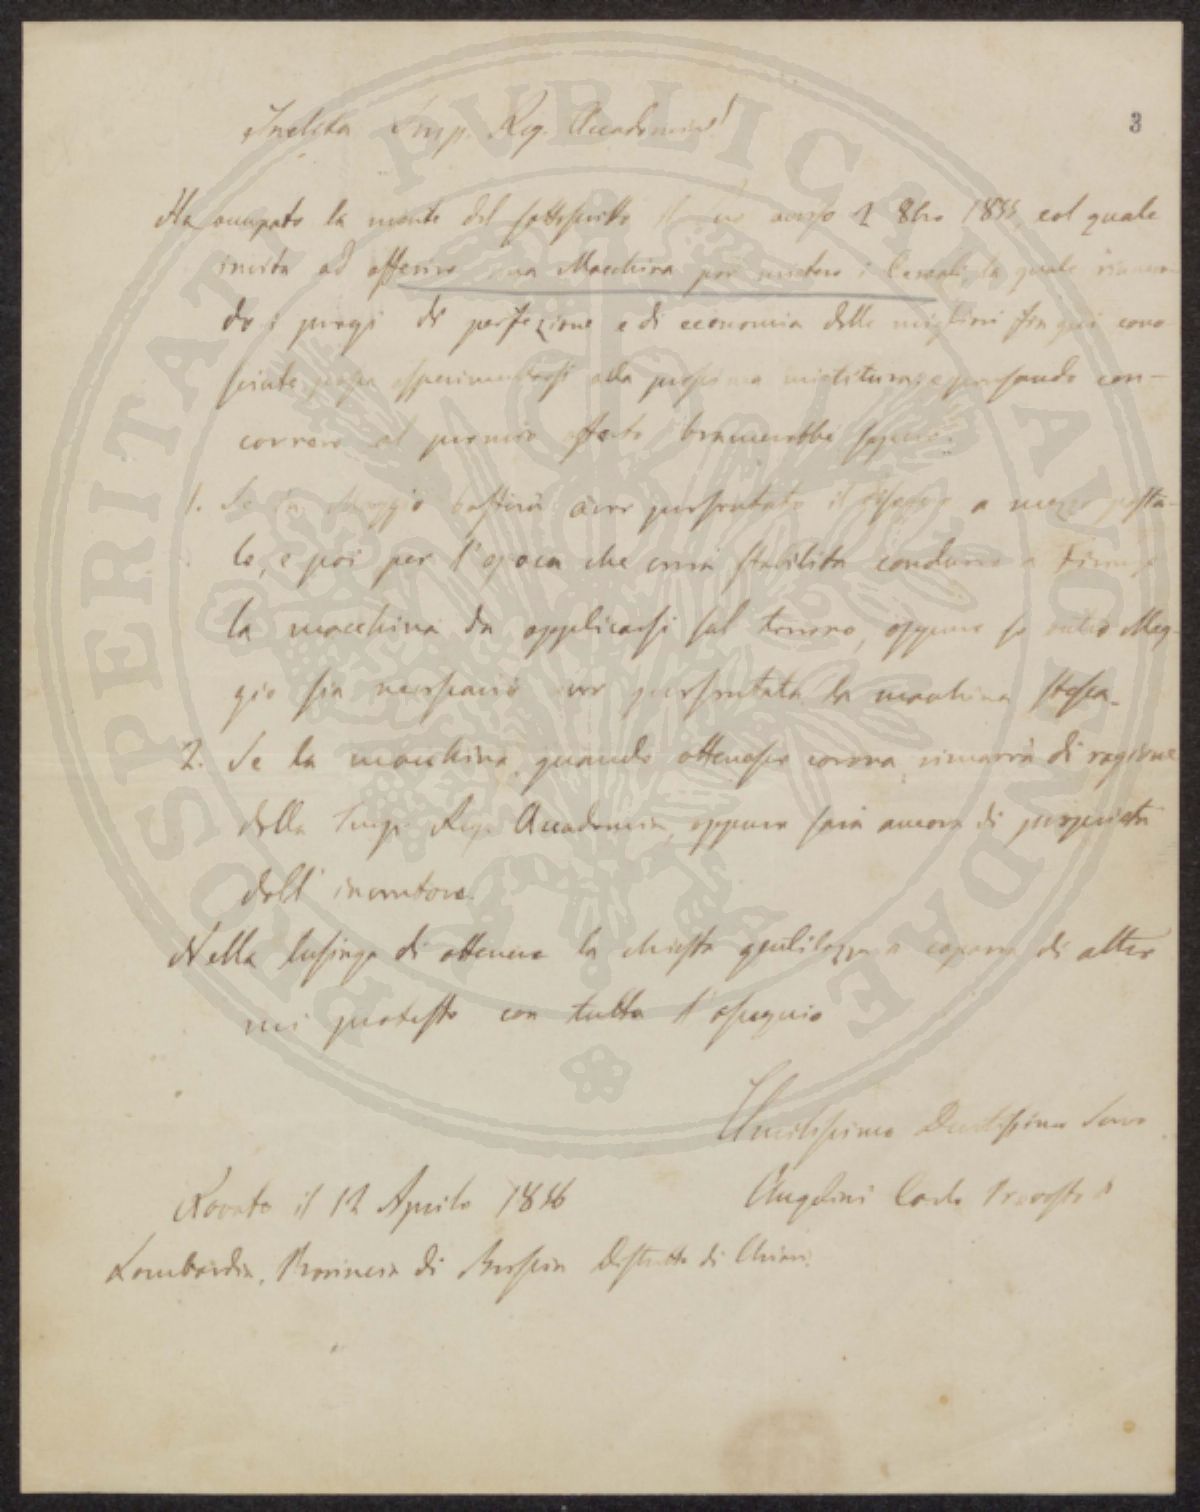 Inclita Imp. Reg. Accademia!
3
Ha occupato la mente del sottoscritto il suo avviso 2 8bre 1855, col quale
invita ad offerire una Macchina per mietere i Cereali, la quale riunen-
do i pregi di perfezione e di economia delle migliori fin qui cono-
sciute possa esperimentarsi alla prossima mietitura; e pensando con-
correre al premio offerto bramerebbe sapere:
1. Se in Maggio basterà aver presentato il disegno a mezzo posta-
le, e poi per l'epoca che verrà stabilita condurre a Firenze
la macchina da applicarsi sul terreno, oppure se entro Mag-
gio sia necessario aver presentata la macchina stessa.
2. Se la macchina, quando ottenesse corona, rimarrà di ragione
della Imp. Reg. Accademia, oppure sarà ancora di proprietà
dell' inventore.
Nella lusinga di ottenere la chiesta gentilezza a caparra di altre
mi protesto con tutto l'ossequio
Umilissimo Devotissimo Servo
Rovato il 12 Aprile 1856
Angelini Carlo Prevosto
Lombardia, Provincia di Brescia Distretto di Chiari.
PROSPERITATI PVBLICAE AVGENDAE